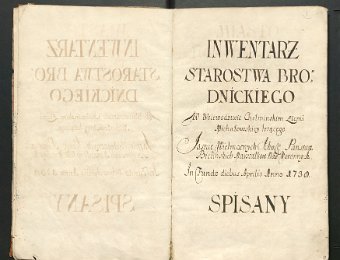 INWENTARZ
STAROSTWA BRO:
DNICKIEGO
W Woiewodztwie Chełminskim Ziemi
Michałowskiey lezącego
Jasnie Wielmoznych Ichść Panstwa
In Fundo diebus Aprilis Anno 1730.
SPISANY